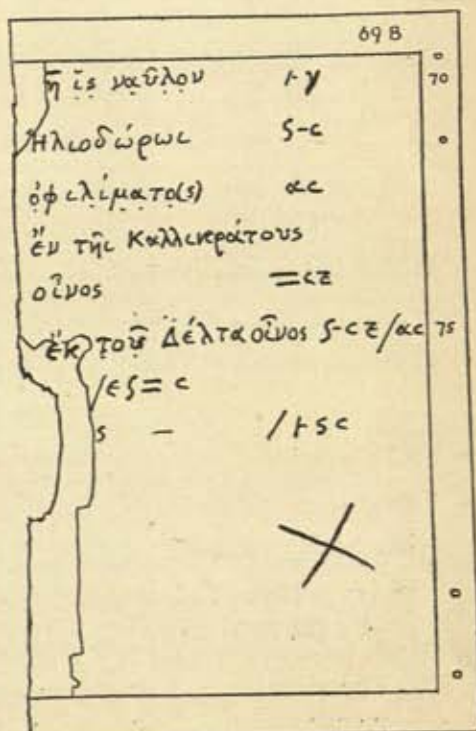 69 B
ῆ ἰς ναῦλον 𐅂 γ 70
Ἡλιοδώρωι ϛ-c
ὀφιλίματο(ς) αc
ἔν τῆι Καλλικράτους
οἶνος =cz
ἔκ τοῦ Δέλτα οἶνος ϛ-cz/αc 75
/εϛ= c
ς - /𐅂ϛc